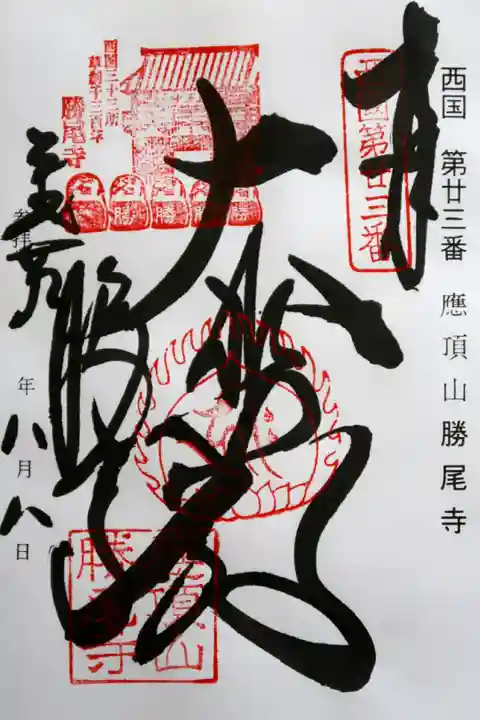 西国 第廿三番 應頂山勝尾寺
奉
西國第廿三番
大悲殿
西国三十三所
草創千三百年
勝尾寺
勝 勝 勝
應頂山
勝尾寺
参拝
年八月八日